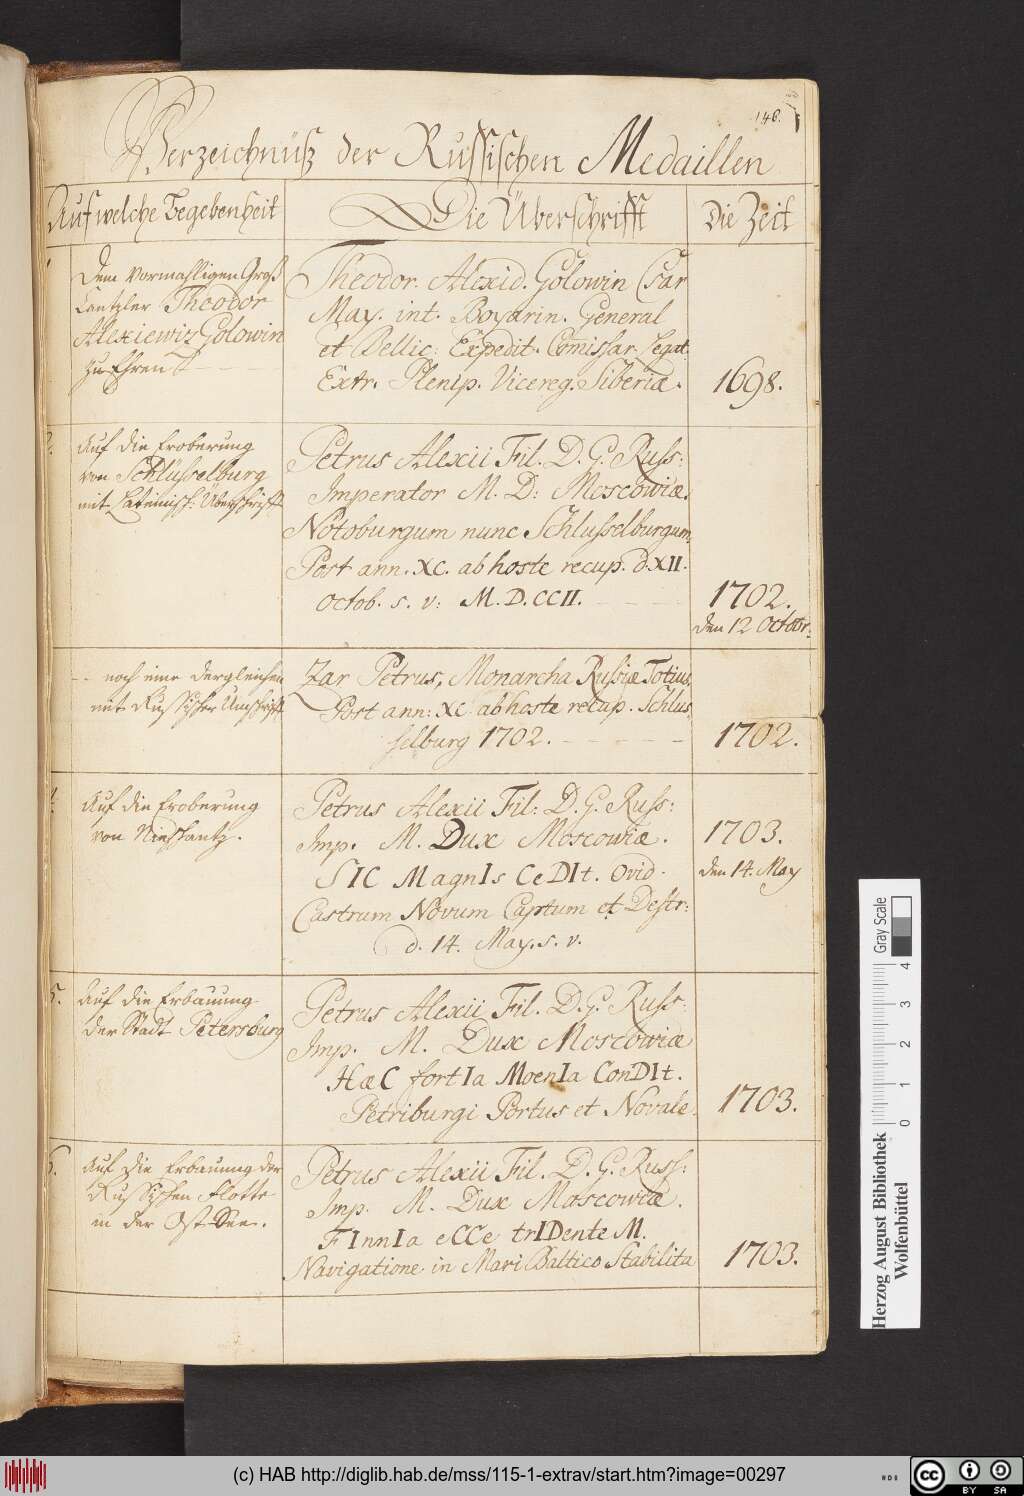 148.
Verzeichnüß der Russischen Medaillen
Auf welche Begebenheit
Die Überschrifft
Die Zeit
Dem vormahligen Groß
Cantzler Theodor
Alexiewiz Golowin
zu Ehren
Theodor. Alexid. Golowin Czar
May. int. Boyarin. General
et Bellic: Expedit. Comissar. Legat.
Extr. Plenip. Vicereg. Siberiæ.
1698.
2.
Auf die Eroberung
von Schlüsselburg
mit Lateinisch: Überschrifft
Petrus Alexii Fil. D. G. Russ:
Imperator M. D: Moscowiæ.
Notoburgum nunc Schlusselburgum
Post ann. XC. ab hoste recup. d. XII.
Octob. s. v: M. D. CCII.
1702.
den 12 Octobr:
noch eine dergleichen
mit Russischer Umschrifft
Zar Petrus, Monarcha Russiæ Totius
Post ann: XC. ab hoste recup. Schlus
selburg 1702.
1702.
4.
Auf die Eroberung
von Nieschantz.
Petrus Alexii Fil: D. G. Russ:
Imp. M. Dux Moscowiæ.
SIC MagnIs CeDIt. Ovid.
Castrum Novum Captum et Destr:
d. 14. May. s. v.
1703.
den 14. May
5.
Auf die Erbauung
der Stadt Petersburg
Petrus Alexii Fil. D. G. Russ:
Imp. M. Dux Moscowiæ
HæC fortIa MoenIa ConDIt.
Petriburgi Portus et Novale.
1703.
6.
Auf die Erbauung der
Russischen Flotte
in der Ost-See.
Petrus Alexii Fil. D. G. Russ:
Imp. M. Dux Moscowiæ.
FInnIa eCCe trIDente M.
Navigatione in Mari Baltico Stabilita
1703.
Herzog August Bibliothek
Wolfenbüttel
0 1 2 3 4
Gray Scale
(c) HAB http://diglib.hab.de/mss/115-1-extrav/start.htm?image=00297
cc BY SA